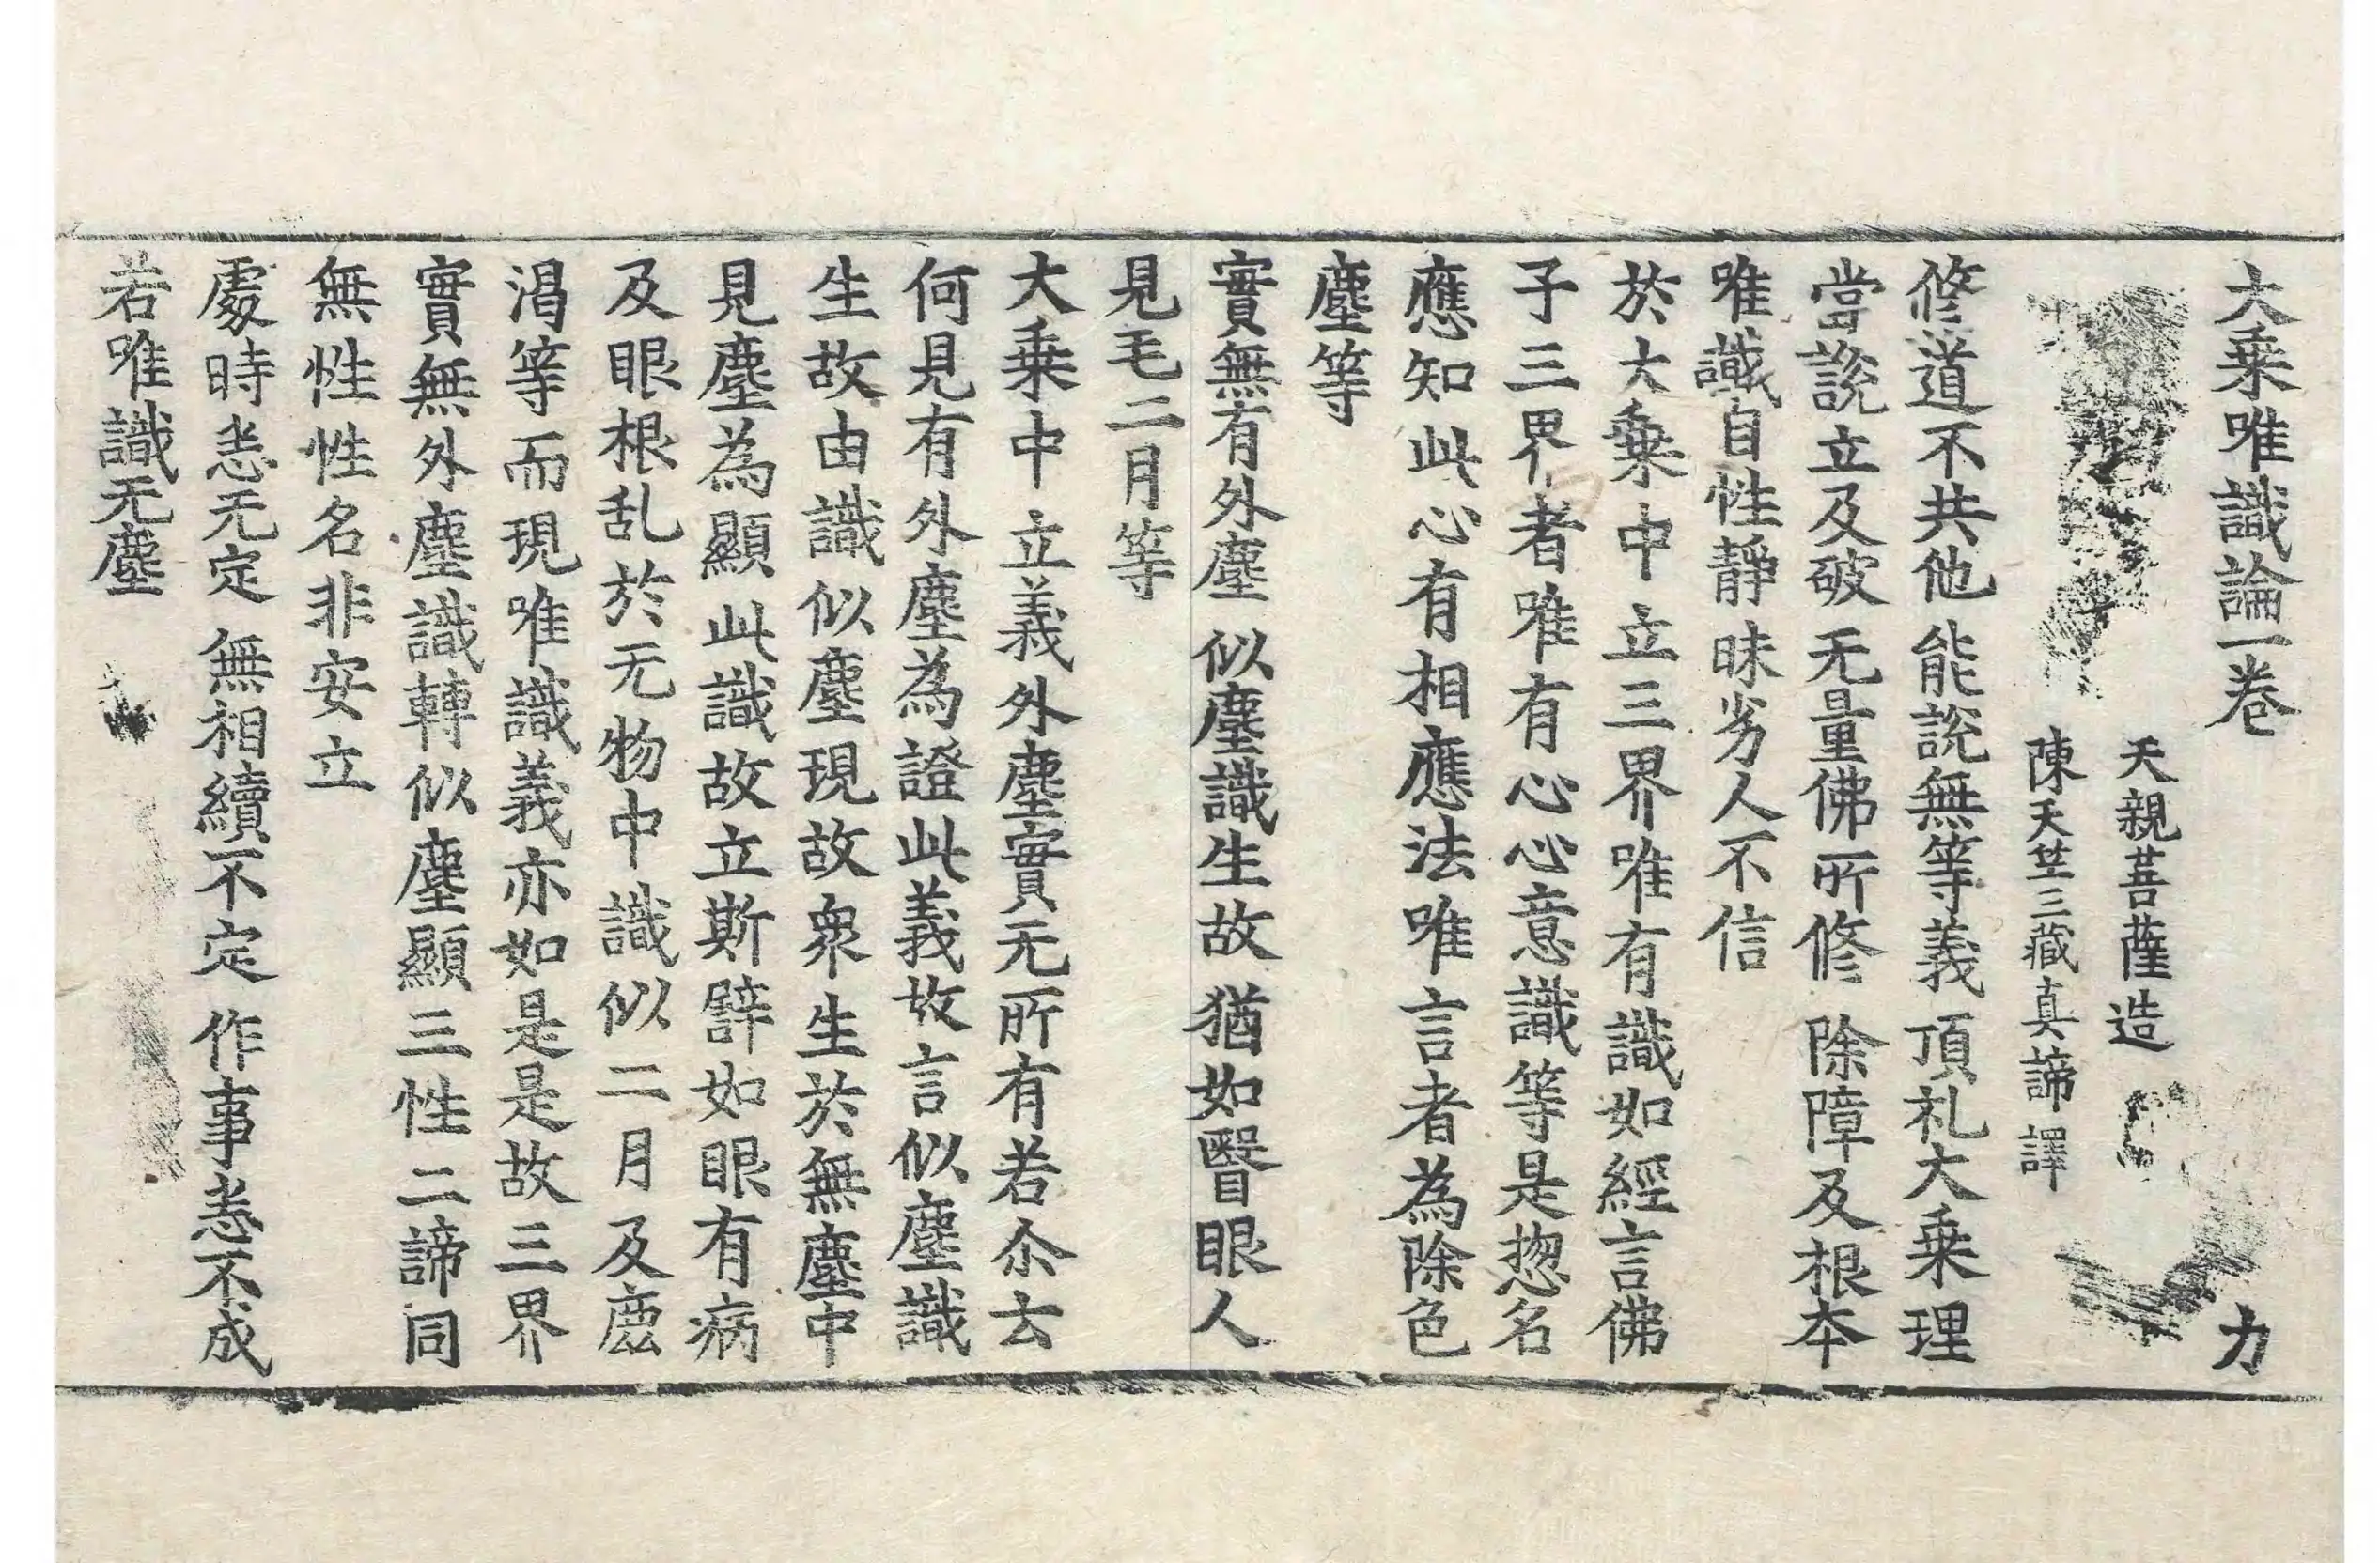 大乗唯識論一巻 力
天親菩薩造
陳天竺三藏真諦譯
修道不共他 能說無等義 頂礼大乗理
當說立及破 无量佛所修 除障及根本
唯識自性靜 昧劣人不信
於大乗中立三界唯有識如經言佛
子三界者唯有心心意識等是惣名
應知此心有相應法唯言者為除色
塵等
實無有外塵 似塵識生故 猶如瞖眼人
見毛二月等
大乗中立義外塵實无所有若尒云
何見有外塵為證此義故言似塵識
生故由識似塵現故衆生於無塵中
見塵為顯此識故立斯譬如眼有病
及眼根乱於无物中識似二月及鹿
渴等而現唯識義亦如是是故三界
實無外塵識轉似塵顯三性二諦同
無性性性名非安立
處時悉无定 無相續不定 作事悉不成
若唯識无塵